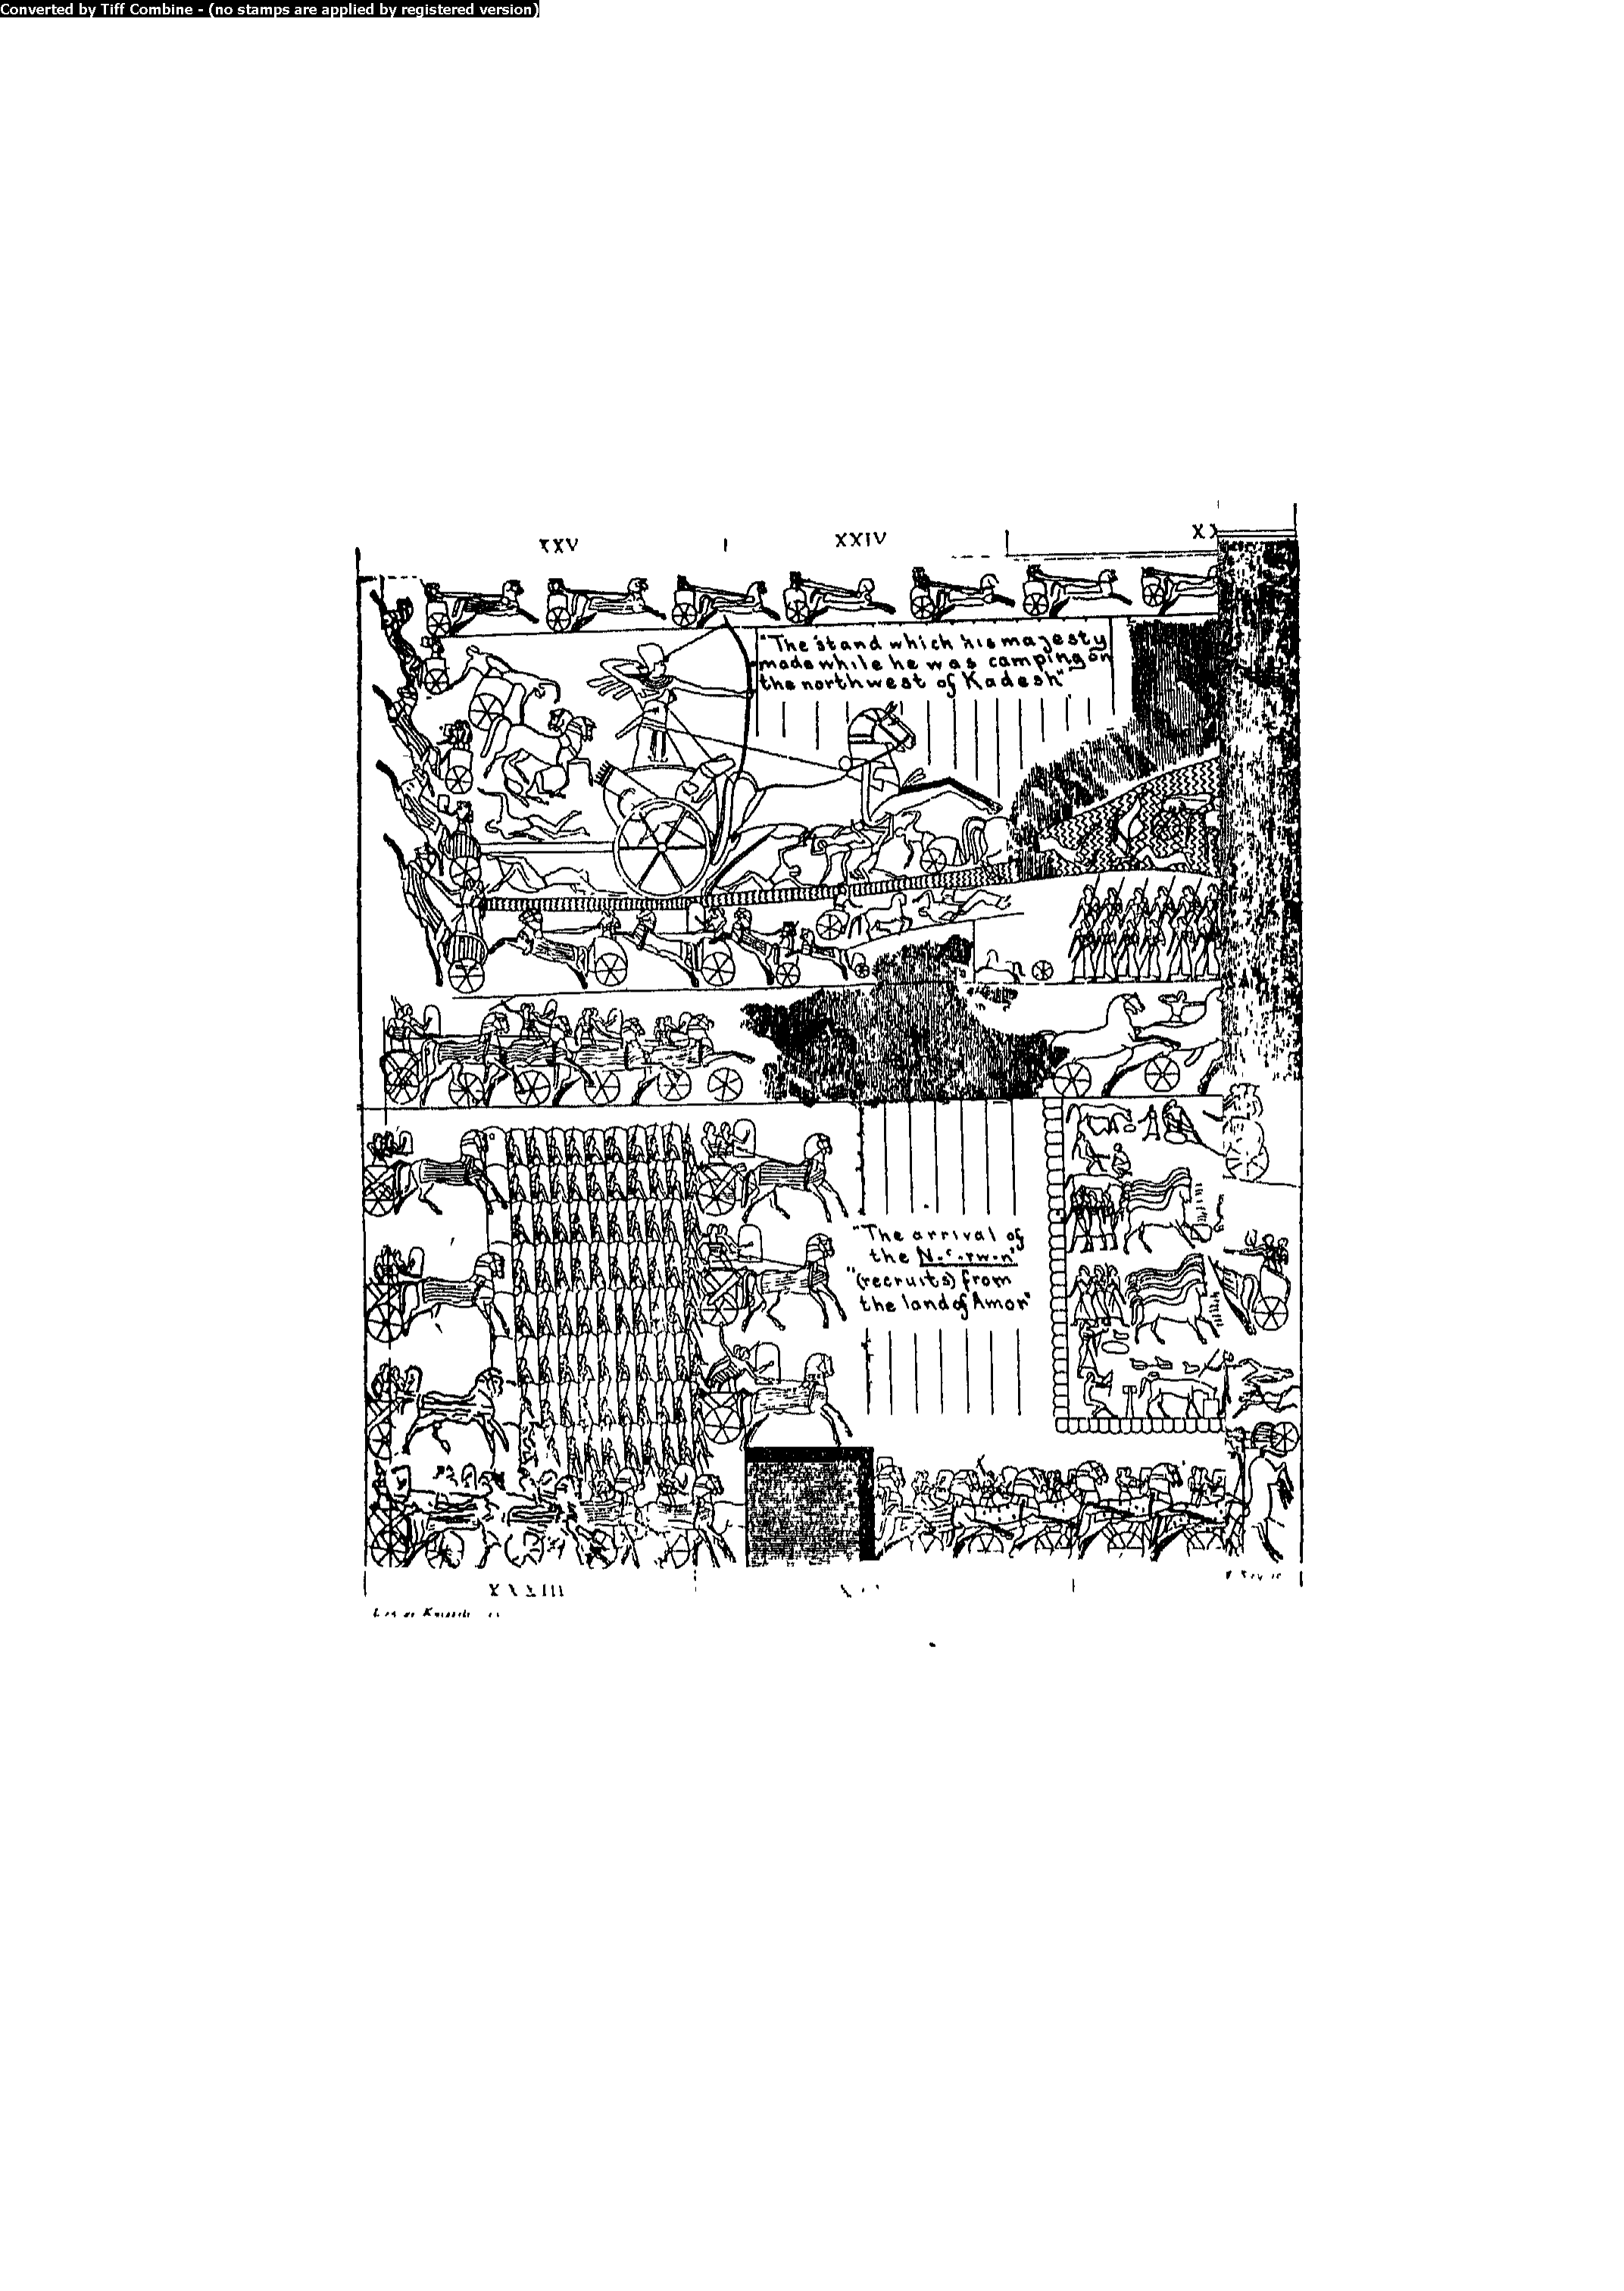 Converted by Tiff Combine - (no stamps are applied by registered version)
XXV
XXIV
XX
"The stand which his majesty
made while he was camping on
the northwest of Kadesh"
"The arrival of
the
"(recruits) from
the land of Amor"
XXXIII